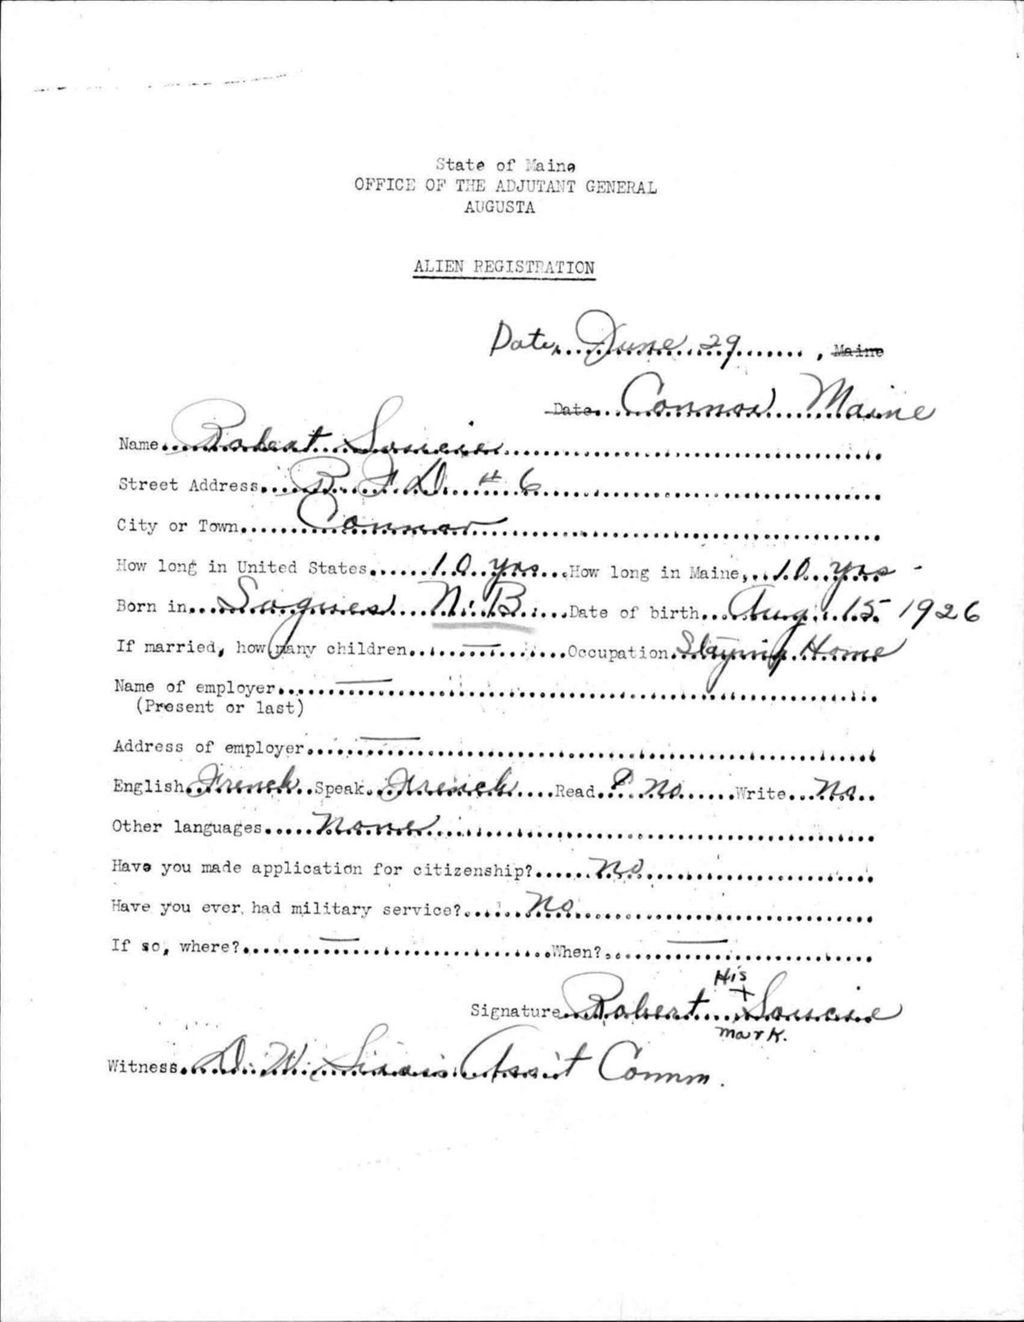 State of Maine
OFFICE OF THE ADJUTANT GENERAL
AUGUSTA
ALIEN REGISTRATION
Date, June 29, Maine
Date Connor Maine
Name Robert Soucie
Street Address R. F. D. # 6
City or Town Connor
How long in United States 10 yrs How long in Maine, 10 yrs
Born in N. B. Date of birth Aug. 15 1926
If married, how many children — Occupation Staying Home
Name of employer —
(Present or last)
Address of employer —
English French Speak French Read No Write No
Other languages None
Have you made application for citizenship? No
Have you ever had military service? No
If so, where? — When? —
His
Signature Robert + Soucie
mark.
Witness D. W. Assit Comm.